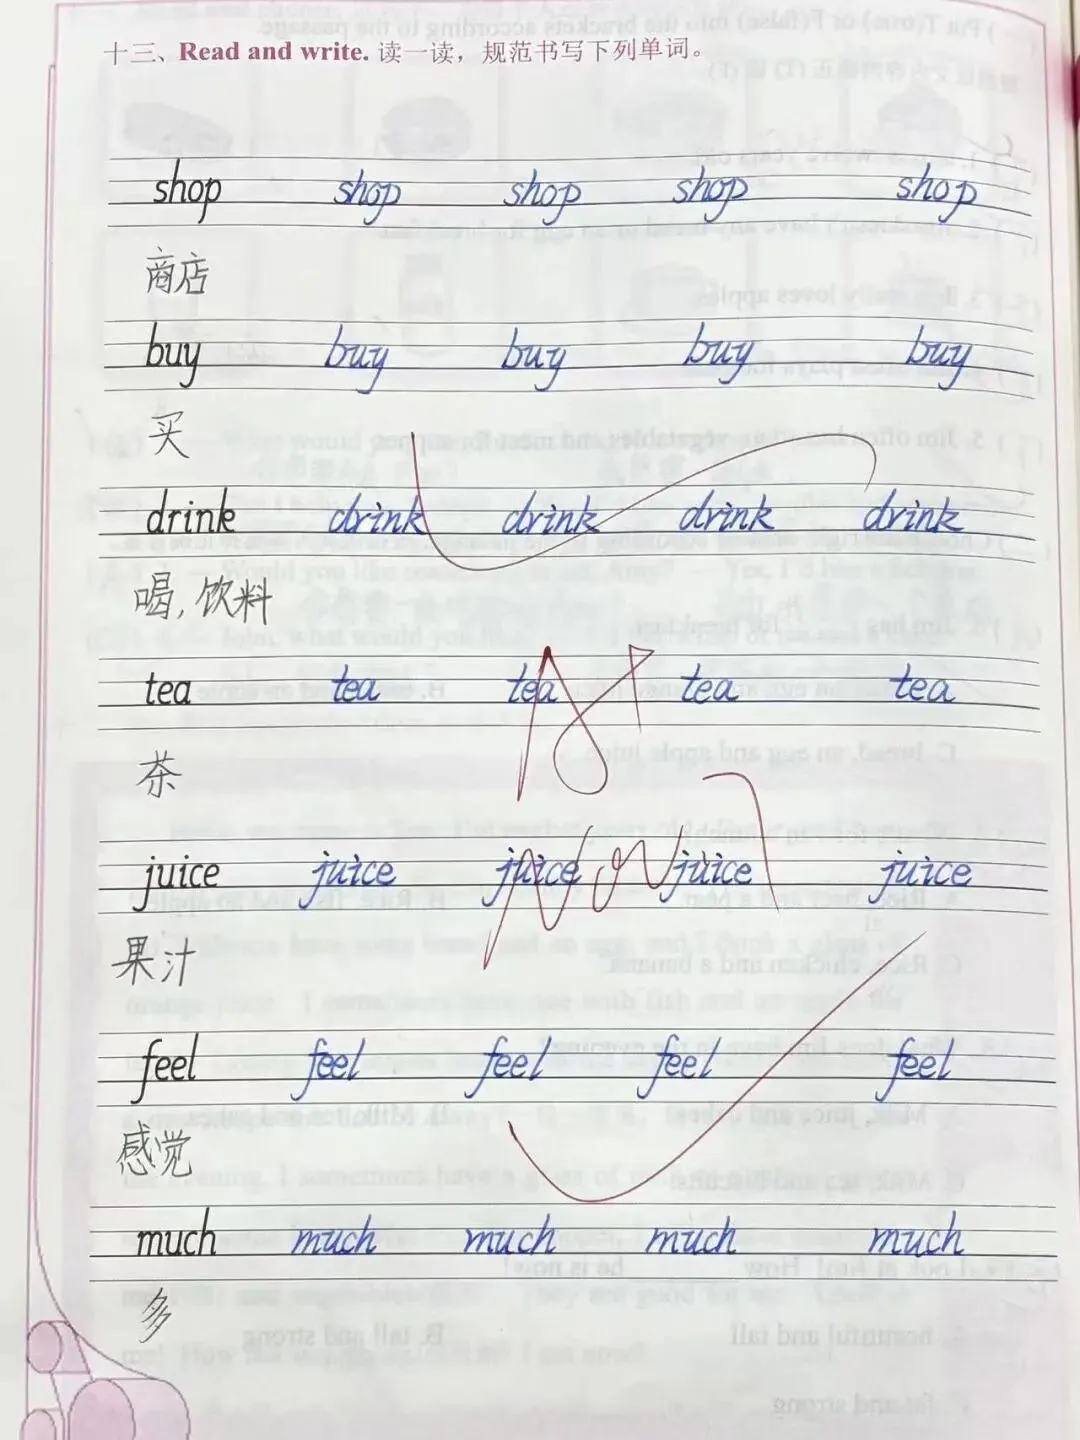 十三、Read and write. 读一读，规范书写下列单词。
shop shop shop shop shop
商店
buy buy buy buy buy
买
drink drink drink drink drink
喝，饮料
tea tea tea tea tea
茶
juice juice juice juice juice
果汁
feel feel feel feel feel
感觉
much much much much much
多